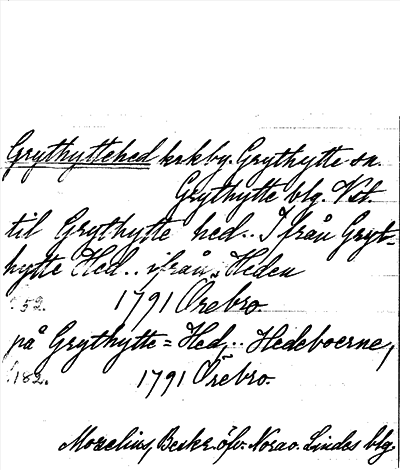 Grythyttehed krkby. Grythytte sn.
Grythytte blg. Vst.
til Grythytte hed.. Ifrån Gryt-
hytte Hed.. ifrån Heden
s. 52. 1791 Örebro.
på Grythytte=Hed,.. Hedeboerne,
s. 182. 1791 Örebro.
Morelius, Beskr. öfv. Nora o. Lindes blg.